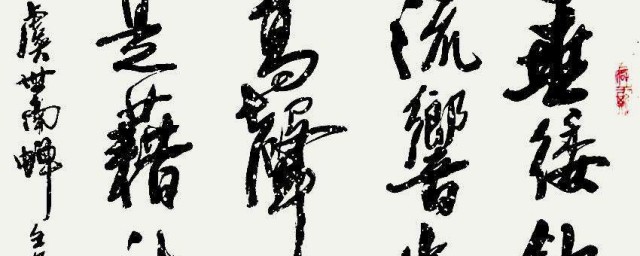 垂緌
流響
高聲
是藉
虞世南蝉